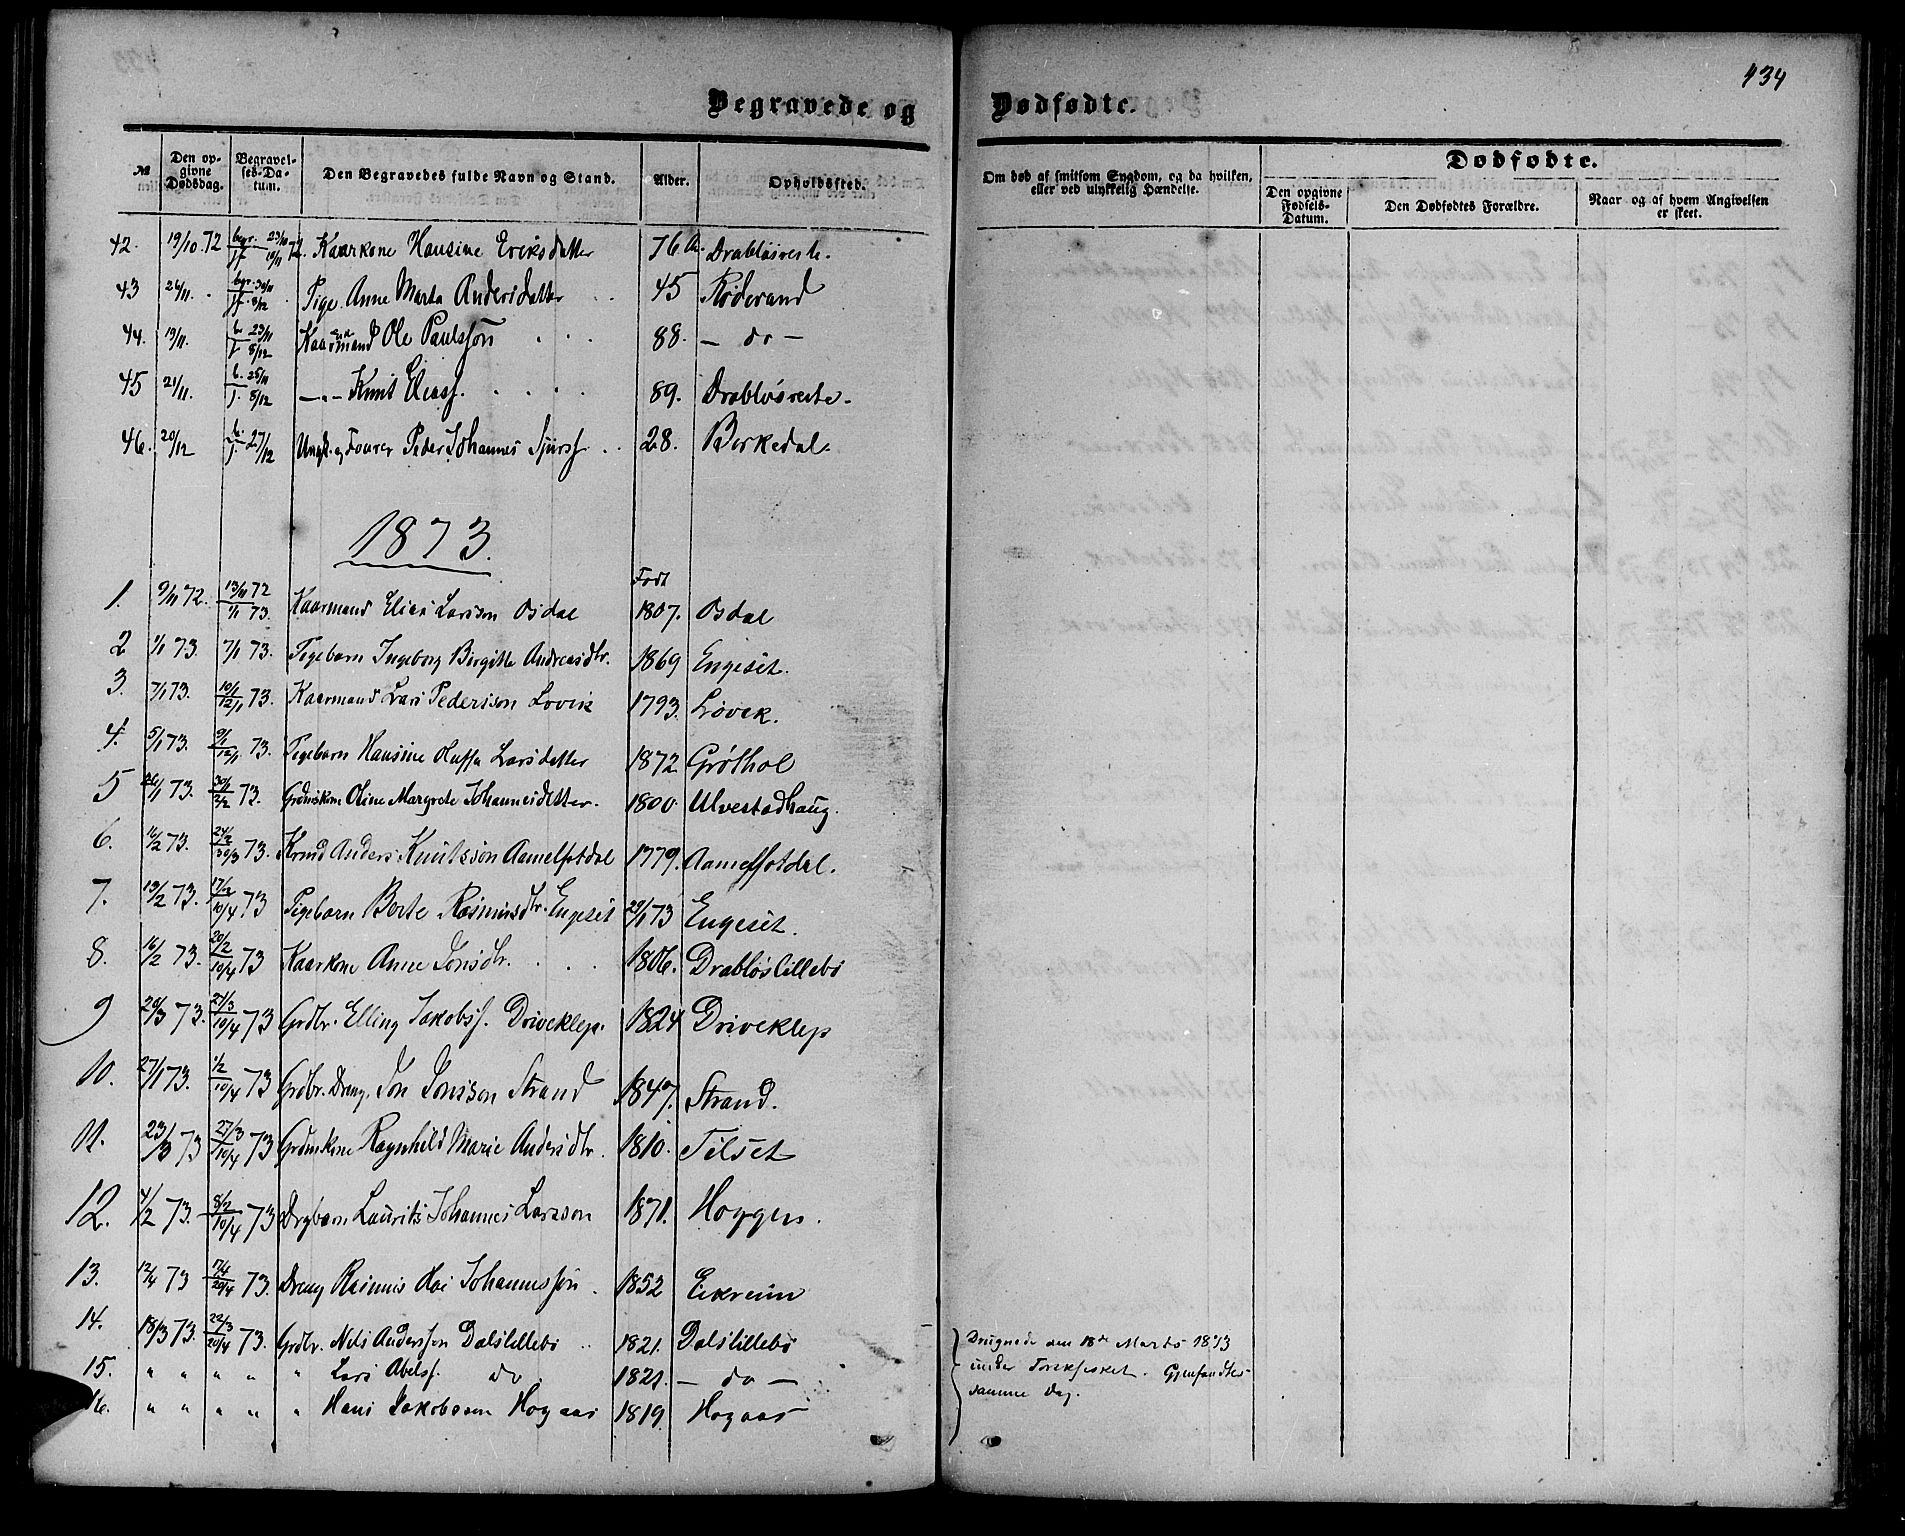 434
Begravede og Dødfødte.
№ Den opgivne Dødsdag. Begravelses-Datum. Den Begravedes fulde Navn og Stand. Alder. Opholdssted. Om død af smitsom Sygdom, og da hvilken, eller ved ulykkelig Hændelse. Dødfødte. Den opgivne Fødsels-Datum. Den Dødfødtes Forældre. Naar og af hvem Angivelsen er skeet.
42. 19/10 72 Kaarkone Hansine Eriksdatter 76 Drabløsveste.
43 Pige Anne Marta Andersdatter 45 Röderand
44. 19/11. b. 23/11 j. 8/12 Kaarmand Ole Paulssøn 88. — do —
45 21/11. b. 25/11 j. 8/12 —〃— Knut Eliasf. 89. Drabløsveste.
46. 20/12 27/12 Ungk. og Peder Johannes 28. Borkedal.
1873.
Født
1. 9/11 72. 13/11 72 1/1 73. Kaarmand Elias Larsson Osdal 1807. Osdal
2 1/1 73 7/1 73. Pigebarn Ingeborg Birgitte Andreasdtr. 1869 Engeset.
3. 7/1 73. 10/1 12/1 73. Kaarmand Lars Pedersson Lovik 1793. Løvik.
4. 5/1 73. 9/1 12/1 73. Pigebarn Hansine Larsdatter 1872 Gröthol
5 26/1 73. 30/1 2/2 73. Grdmskone Oline Margrete Johannesdtter. 1800. Ulvestadhaug.
6. 16/2 73. 24/2 30/3 73. Anders Knutsson Aamelfotdal 1779. Aamelfotdal.
7. 13/2 73. 17/2 10/4 73 Pigebarn Berte Rasmusdtr. Engeset 29/1 73 Engeset.
8. 16/2 73. 20/2 10/4 73 Kaarkone Anne Jonsdtr. 1806. Drabløslillebö
9 20/3 73. 27/3 10/4 73 Grdbr. Elling Jakobsf. Driveklep. 1824 Driveklep
10. 27/1 73. 1/2 10/4 73 Grdbr. Dreng. Jon Jonsson Strand 1847. Strand.
11. 23/3 73 27/3 10/4 73 Grdmskone Ragnhild Marie Andersdtr. 1810. Tilset
12. 4/2 73. 8/2 10/4 73 Drgbarn Laurits Johannes Larsson 1871. Hoggen.
13. 12/4 73 17/4 20/4 73. Dreng Rasmus Johannessøn. 1852 Eikreim
14. 18/3 73. 22/3 20/4 73. Grdbr. Nils Anderssøn Dalslillebö 1821. Dalslillebö
Druknede den 18de Marts 1873
15. 〃 〃 〃 〃 〃 Lars Abelsf. do 1821. — do —
under Torskfisket. Gjenfandtes
16. 〃 〃 〃 〃 〃 Hans Jakobssen Hogaas 1819. Hogaas
samme Dag.